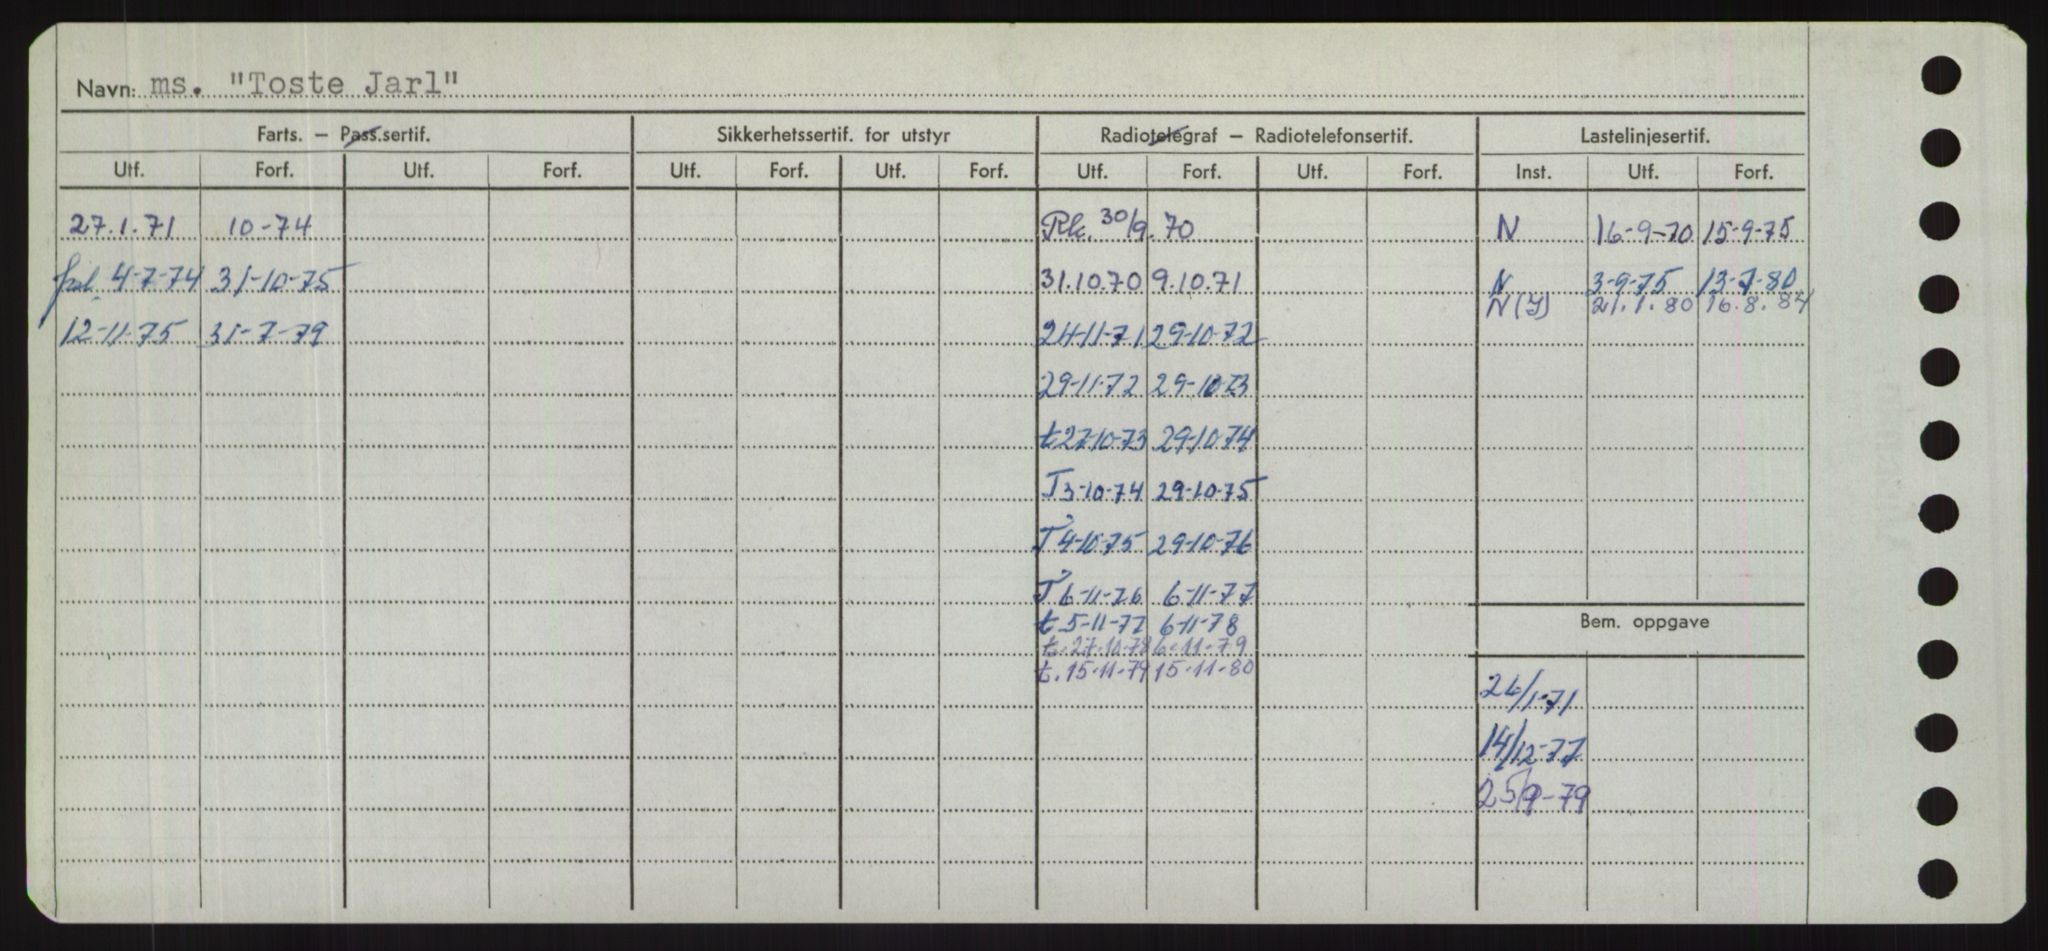 Navn: ms. "Toste Jarl"
Farts. – Pass.sertif. Sikkerhetssertif. for utstyr Radiotelegraf – Radiotelefonsertif. Lastelinjesertif.
Utf. Forf. Utf. Forf. Utf. Forf. Utf. Forf. Utf. Forf. Utf. Forf. Inst. Utf. Forf.
27.1.71 10-74 Rk. 30/9.70 N 16-9-70 15-9-75
4-7-74 31-10-75 31.10.70 9.10.71 N 3-9-75 13-7-80
N(Y) 21.1.80 16.8.84
12-11-75 31-7-79 24-11-71 29-10-72
29-11-72 29-10-73
t 27-10-73 29-10-74
T 3-10-74 29-10-75
T 4-10-75 29-10-76
T 6-11-76 6-11-77
t. 5-11-77 6-11-78
Bem. oppgave
t. 27-10-78 6-11-79
t. 15-11-79 15-11-80
26/1-71
14/12-77
25/9-79